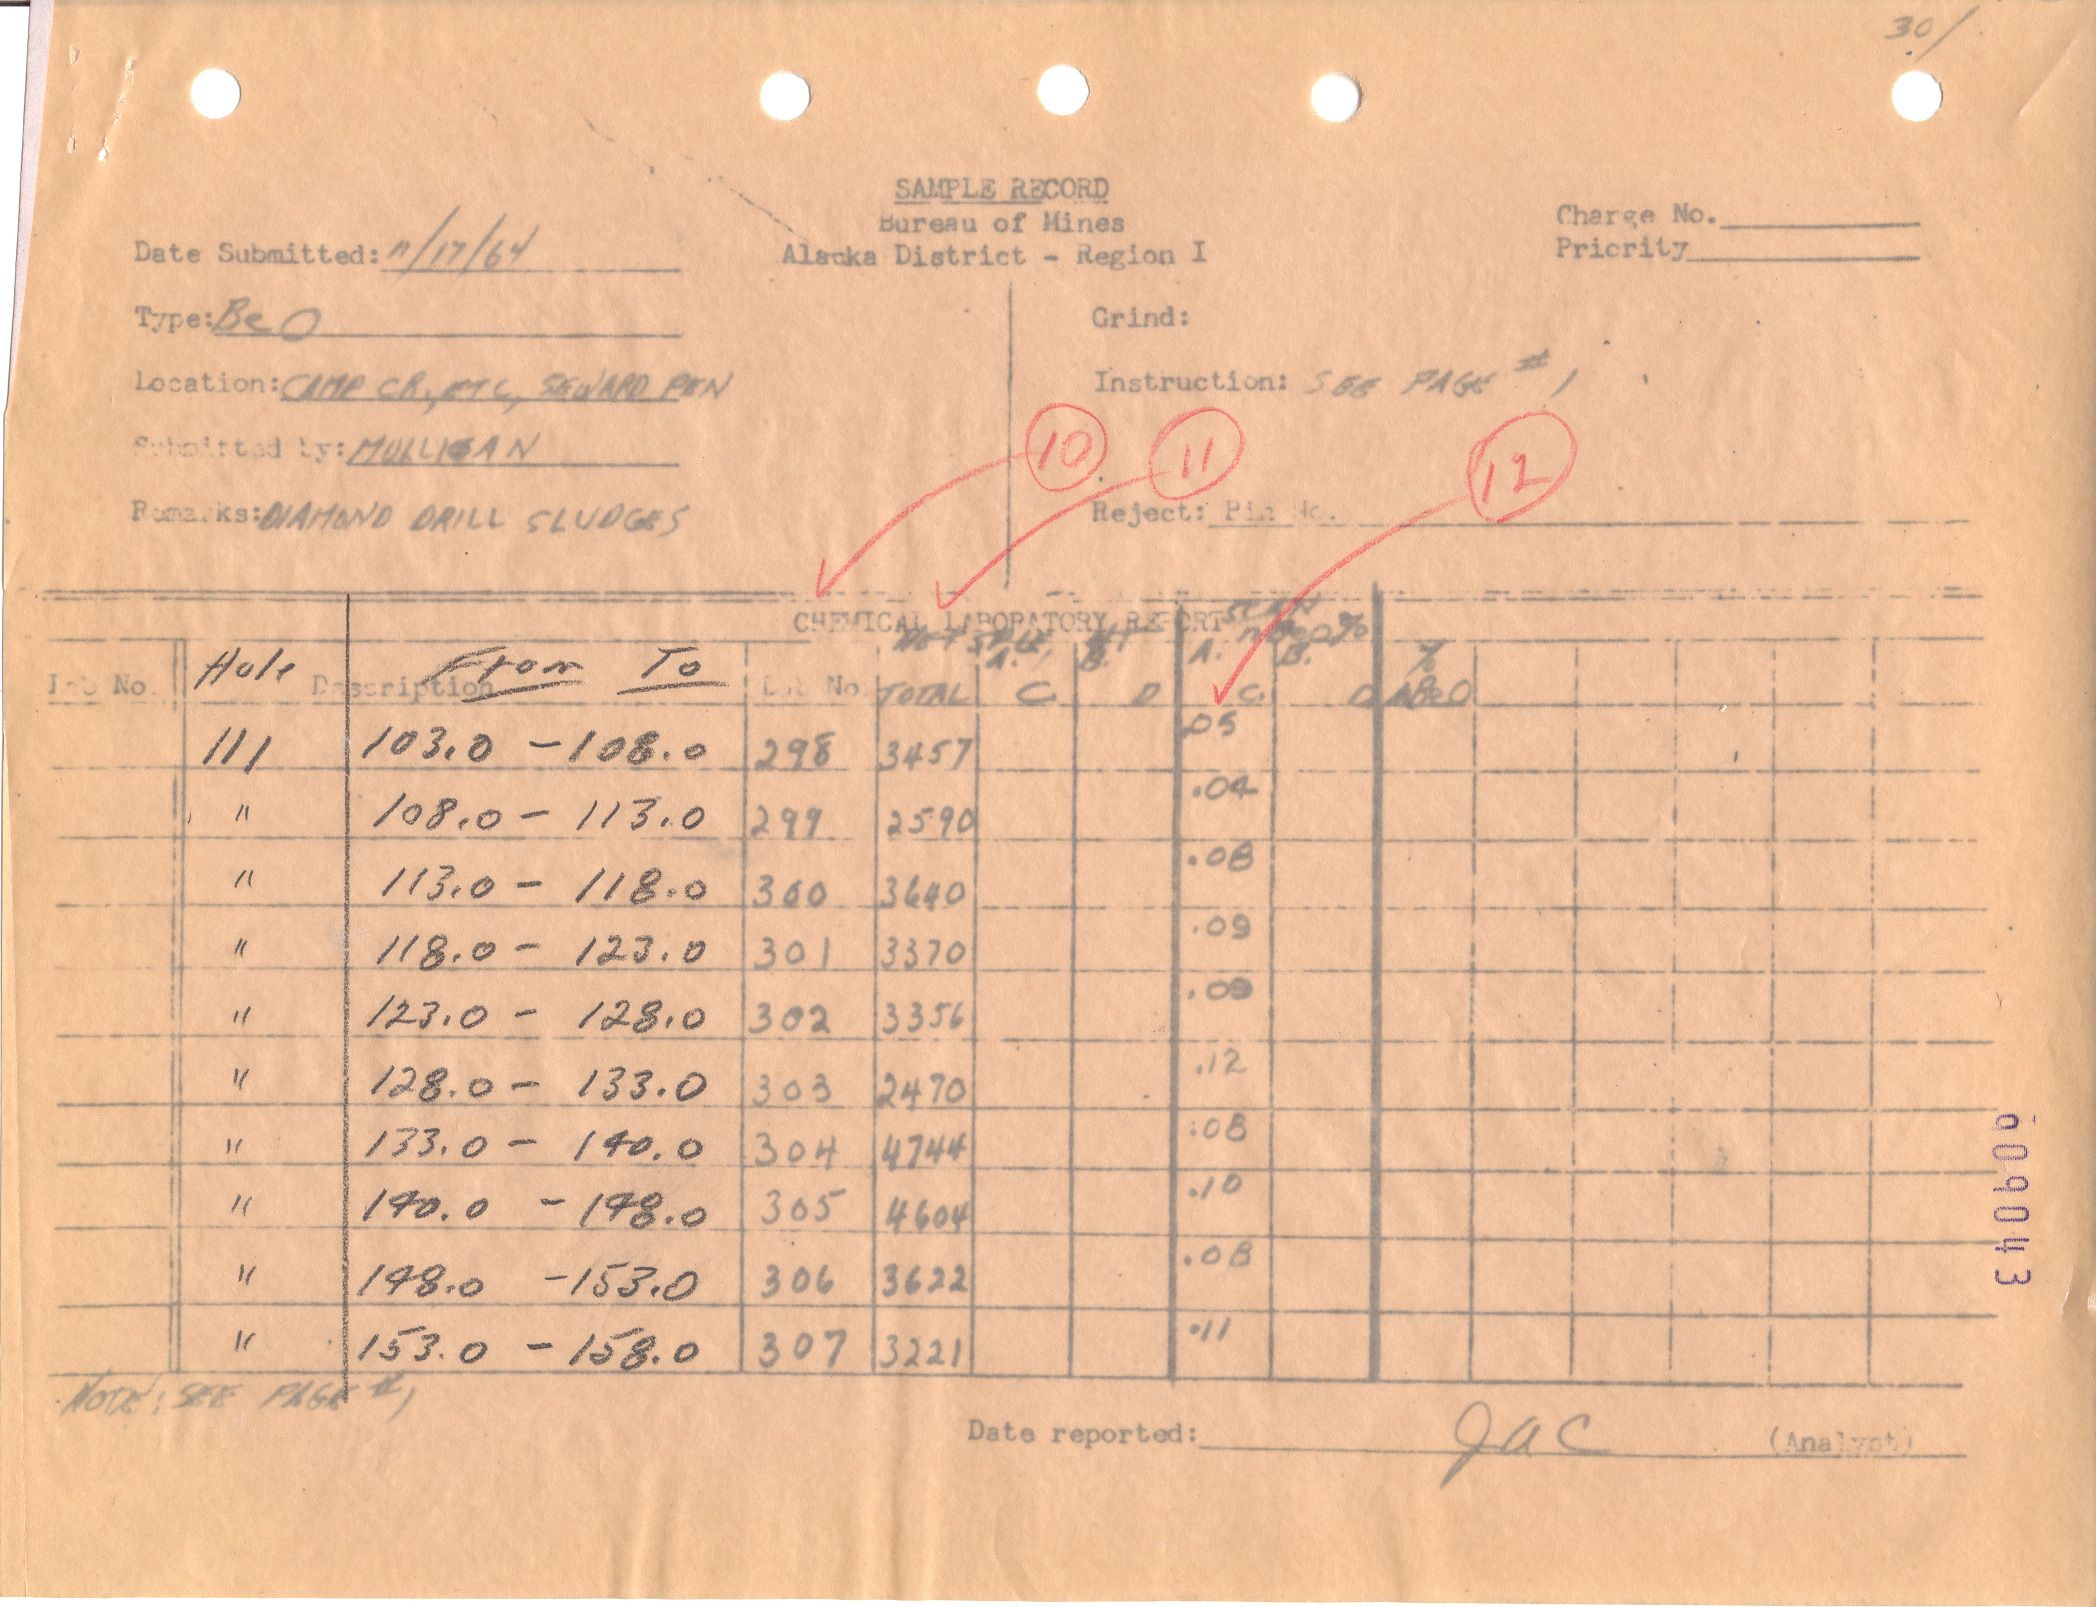 30/
SAMPLE RECORD
Bureau of Mines
Alaska District - Region I
Charge No.
Priority
Date Submitted: 11/17/64
Type: BeO
Location: CAMP CR., ETC, SEWARD PEN
Submitted by: MULLIGAN
Remarks: DIAMOND DRILL SLUDGES
Grind:
Instruction: SEE PAGE # 1
10 11 12
Reject: Bin No.
CHEMICAL LABORATORY REPORT
Lab No. Hole Description From To Lot No. TOTAL A. C. B. D A. C. B. D % BeO
111 103.0 - 108.0 298 3457 .05
" 108.0 - 113.0 299 2590 .04
" 113.0 - 118.0 300 3640 .08
" 118.0 - 123.0 301 3370 .09
" 123.0 - 128.0 302 3356 .09
" 128.0 - 133.0 303 2470 .12
" 133.0 - 140.0 304 4744 .08
" 140.0 - 148.0 305 4604 .10
" 148.0 - 153.0 306 3622 .08
" 153.0 - 158.0 307 3221 .11
NOTE: SEE PAGE # 1
Date reported: JAC (Analyst)
609043